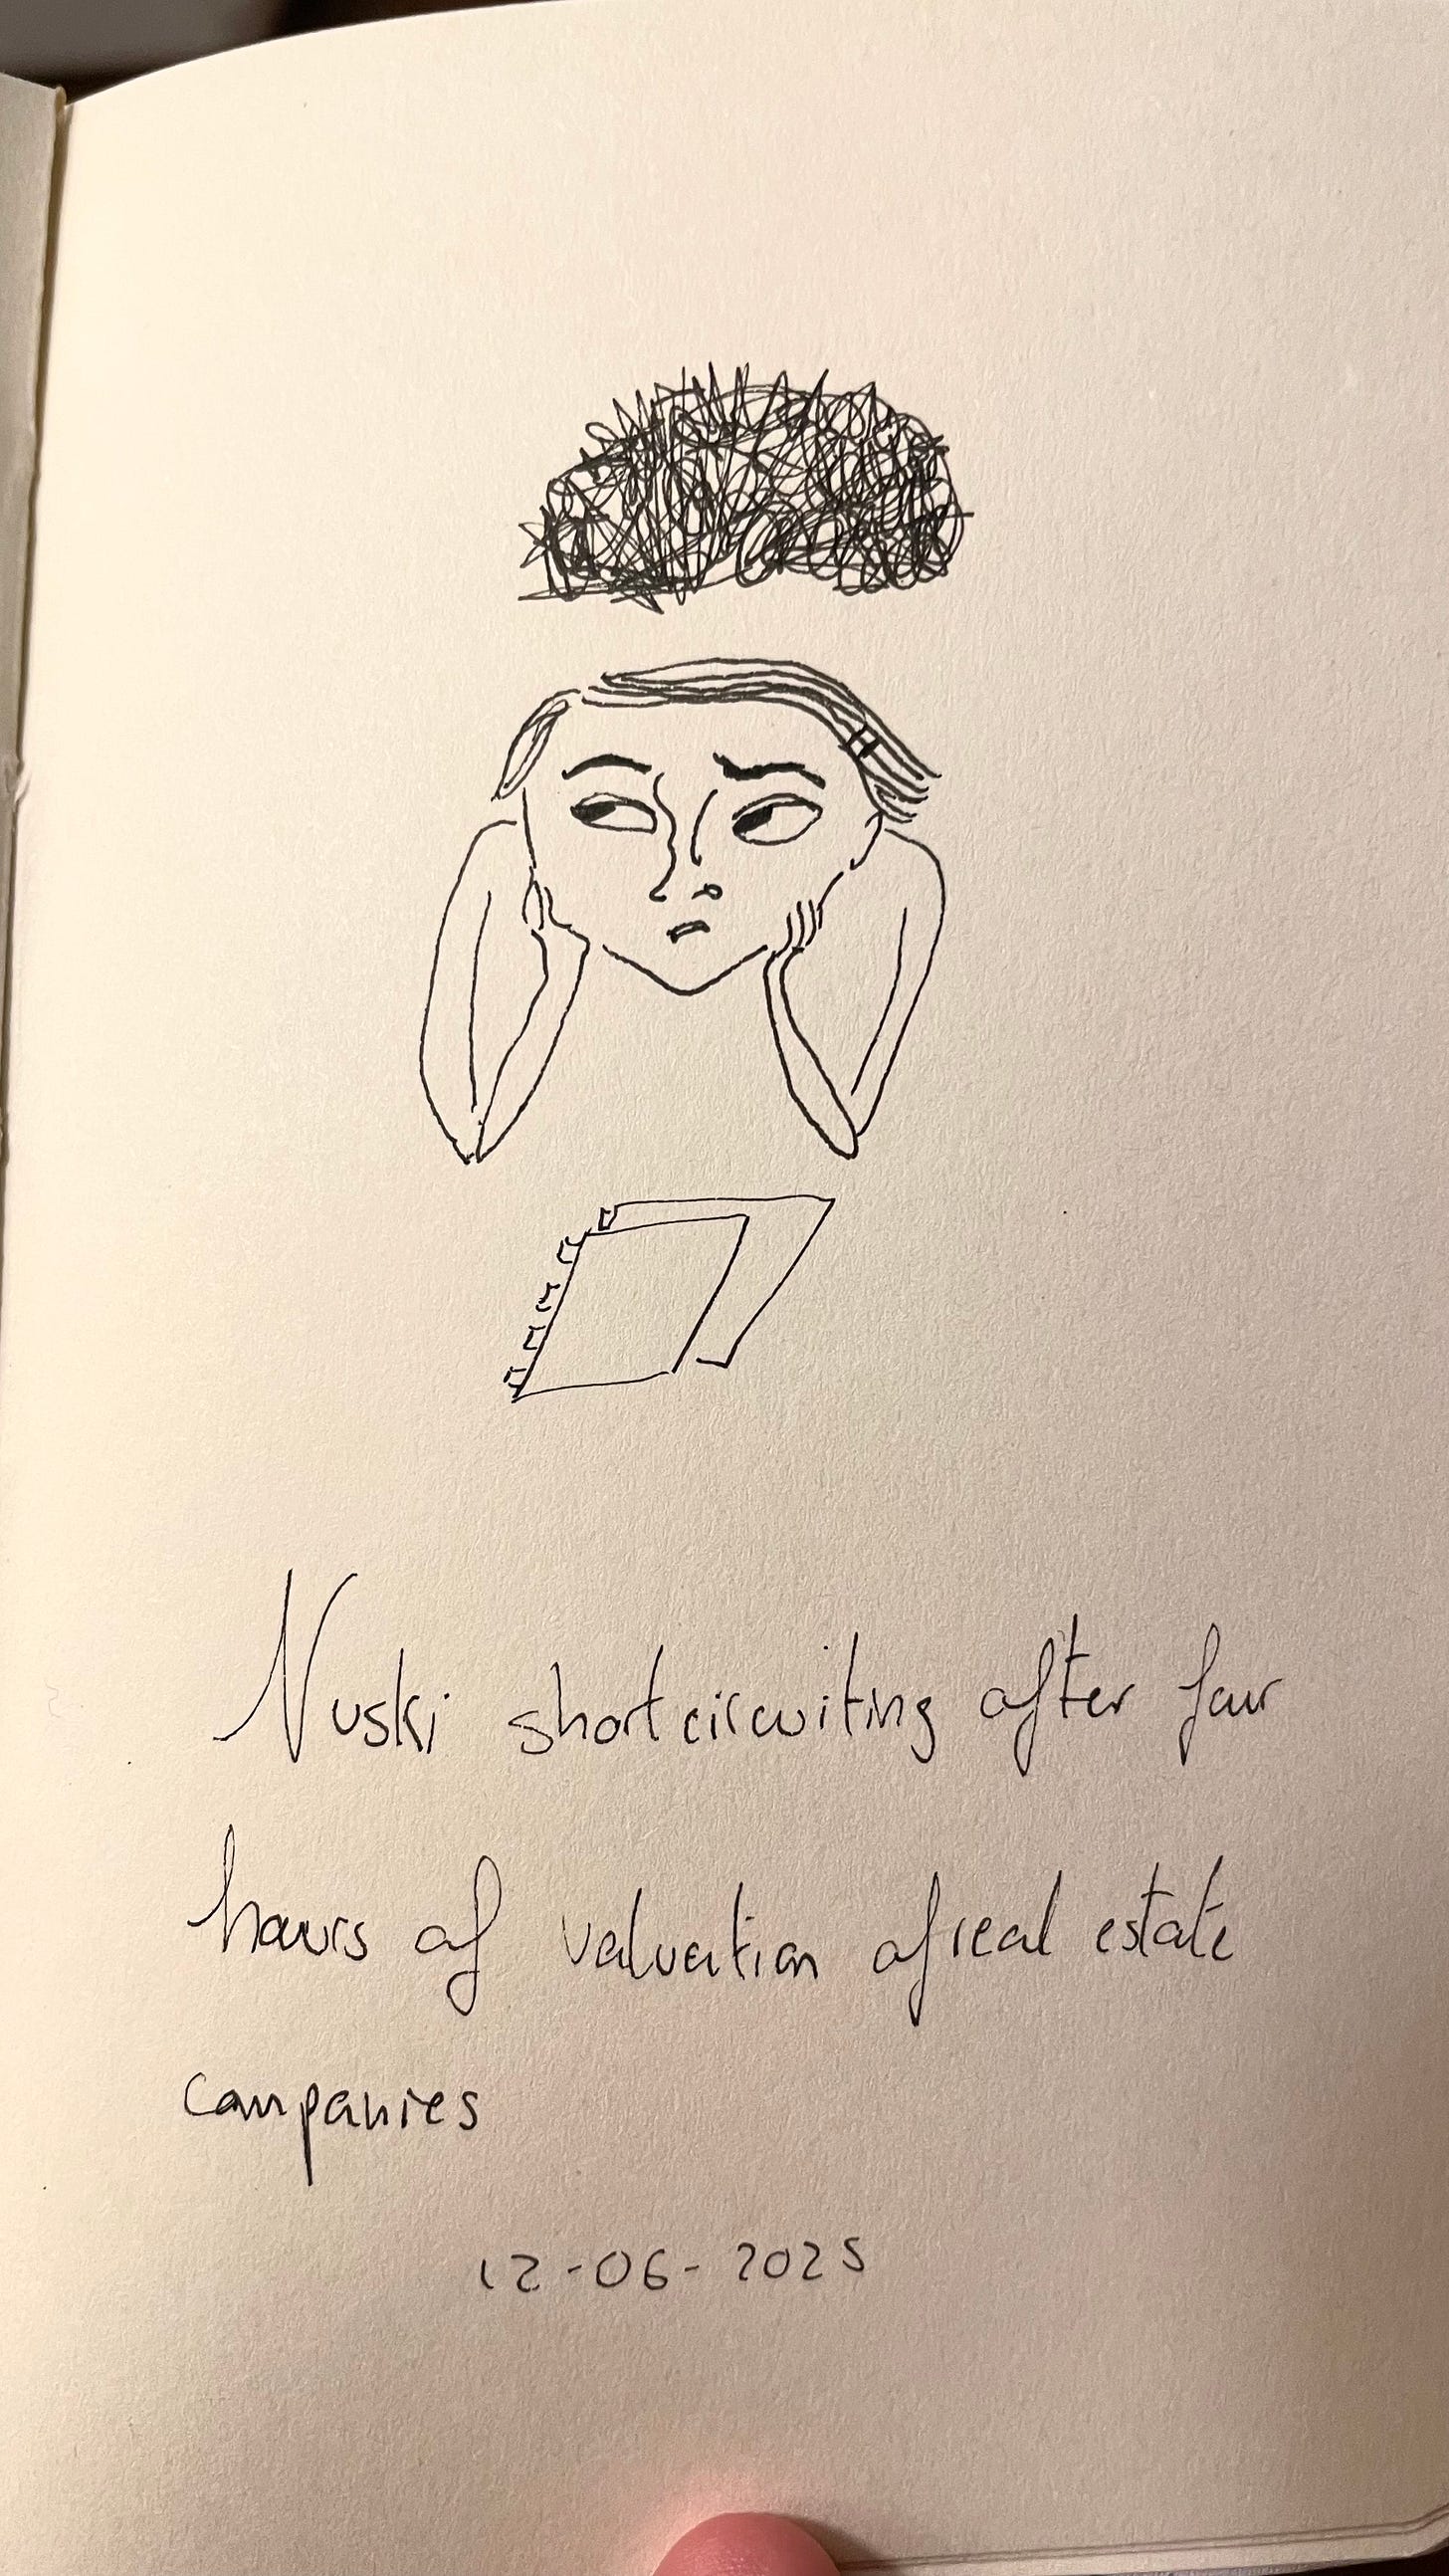 Nuski shortcircuiting after four
hours of valuation of real estate
companies
12-06-2025